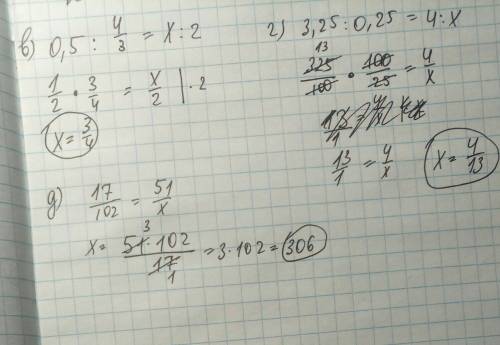 в) 0,5 : 4/3 = x : 2
1/2 · 3/4 = x/2 | · 2
x = 3/4
г) 3,25 : 0,25 = 4 : x
13
325/100 · 100/25 = 4/x
13/1 = 4/x
x = 4/13
д) 17/102 = 51/x
x = 51 · 102/17 = 3 · 102 = 306
3
1